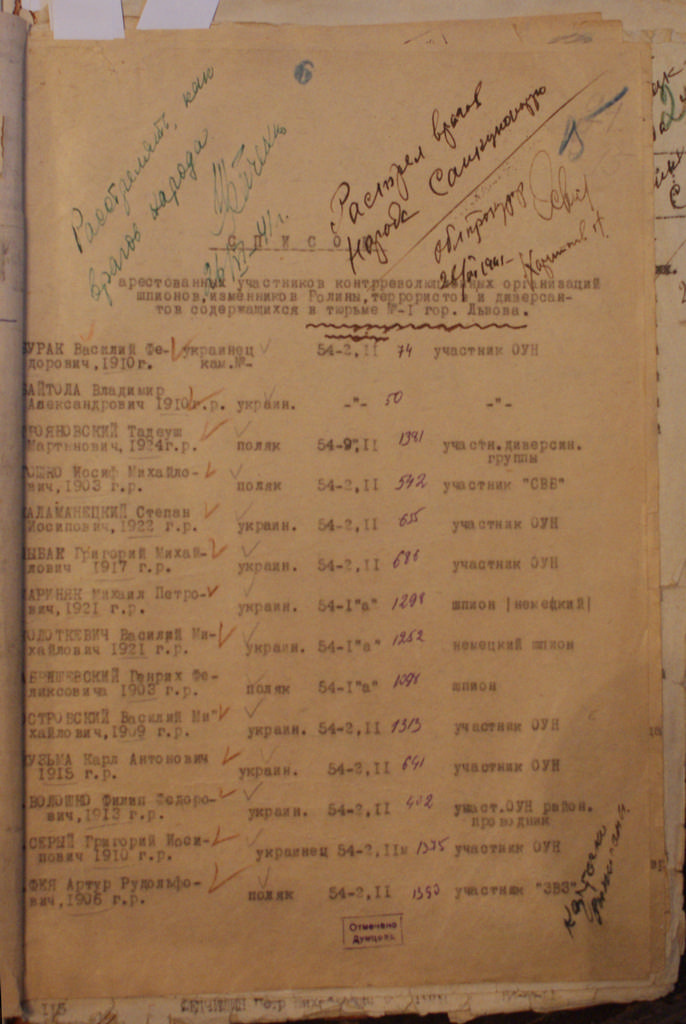 6
Расстрелять, как
врагов народа
26/VI-41г.
Расстрел врагов
Народа Санкционирую
облпрокурор
26/VI 1941-
С П И С О
арестованных участников контрреволюционных организаций
шпионов,изменников Родины,террористов и диверсан-
тов содержащихся в тюрьме №-I гор. Львова.
УРАК Василий Фе- украинец 54-2,II 74 участник ОУН
дорович,1910г. кам.№-
АЙТОЛА Владимир
Александрович 1910г.р. украин. -"- 50 -"-
ОЯНОВСКИЙ Тадеуш
Мартынович, 1924г.р. поляк 54-9,II 1391 участн.диверсин.
группы
ОШКО Иосиф Михайло-
вич,1903 г.р. поляк 54-2,II 542 участник "СВБ"
АЛАМАНЕЦКИЙ Степан
Иосипович,1922 г.р. украин. 54-2,II 655 участник ОУН
ЫБАК Григорий Михай-
лович 1917 г.р. украин. 54-2,II 686 участник ОУН
АРИНЯК Михаил Петро-
вич,1921 г.р. украин. 54-I"а" 1298 шпион |немецкий|
ОЛОТКЕВИЧ Василий Ми-
хайлович 1921 г.р. украин. 54-I"а" 1252 немецкий шпион
ШЕВСКИЙ Генрих Фе-
ликсовича 1903 г.р. поляк 54-I"а" 1091 шпион
СТРОВСКИЙ Василий Ми-
хайлович,1909 г.р. украин. 54-2,II 1313 участник ОУН
УЗЬМА Карл Антонович
1915 г.р. украин. 54-2,II 641 участник ОУН
ВОЛОШКО Филип Федоро-
вич,1913 г.р. украин. 54-2,II 402 участ.ОУН район.
проводник
СЕРЫЙ Григорий Иоси-
пович 1910 г.р. украинец 54-2,II 1375 участник ОУН
Артур Рудольфо-
вич,1906 г.р. поляк 54-2,II 1390 участник "ЗВЗ"
Отмечено
115